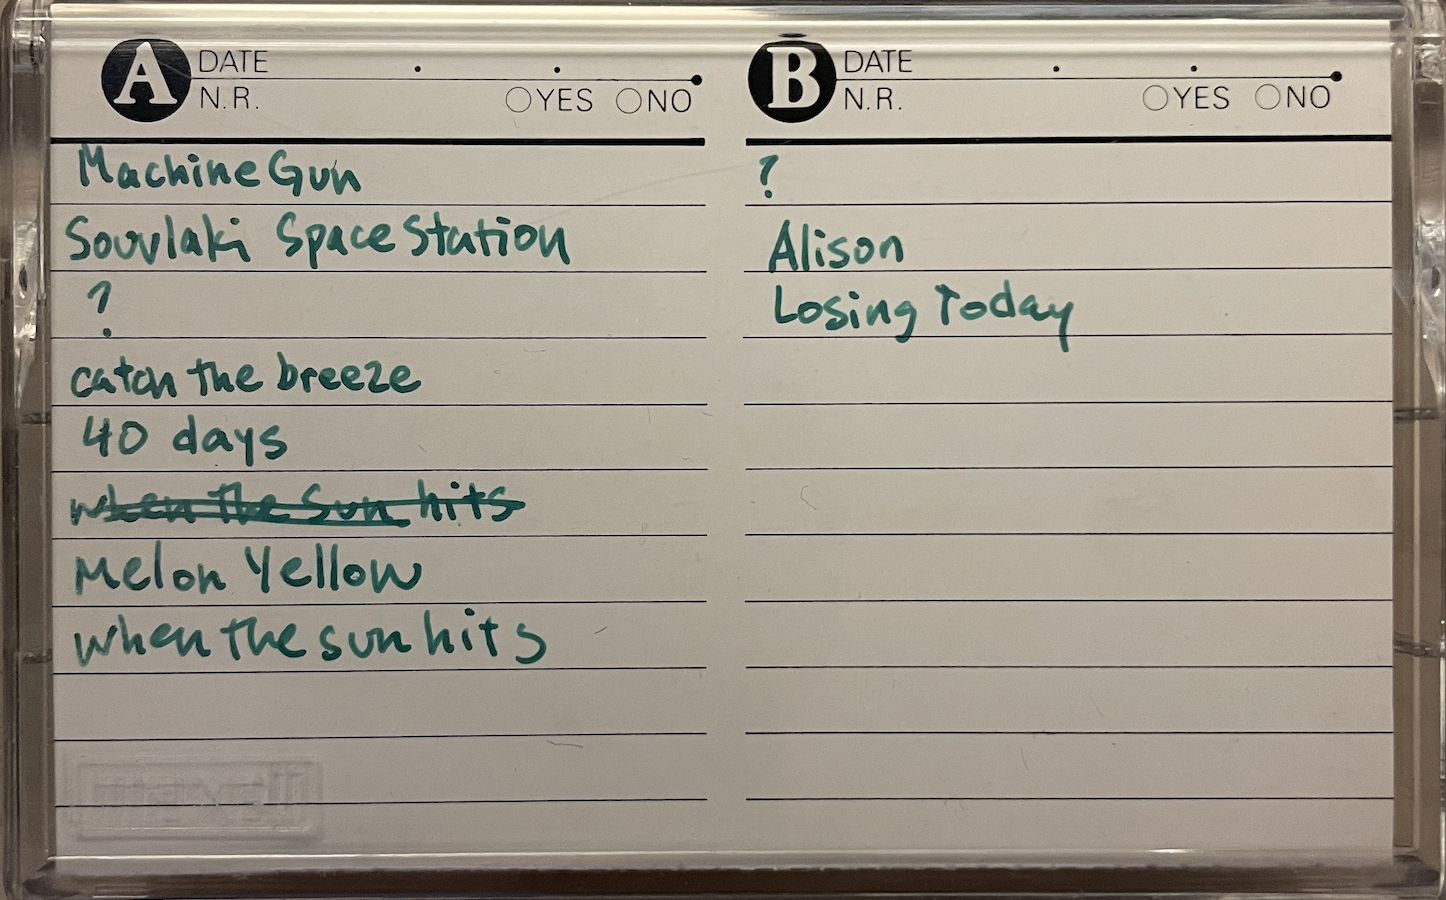 A DATE
N.R. YES NO
Machine Gun
Souvlaki Space Station
?
catch the breeze
40 days
when the sun hits
Melon Yellow
when the sun hits
B DATE
N.R. YES NO
?
Alison
Losing Today
maxell